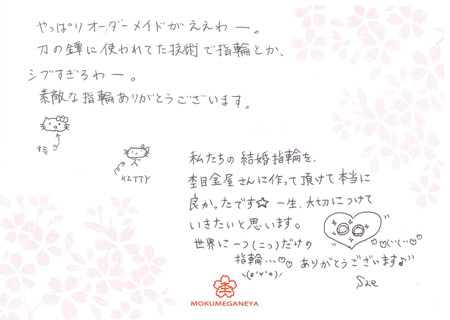 やっぱりオーダーメイドがええわー。
刀の鍔に使われてた技術で指輪とか、
シブすぎるわー。
素敵な指輪ありがとうございます。
KITTY
私たちの結婚指輪を、
杢目金屋さんに作って頂けて本当に
良かったです☆ 一生、大切につけて
いきたいと思います。
世界に一つ(二つ)だけの
指輪…♡♡
ありがとうございます♪
Sae
MOKUMEGANEYA